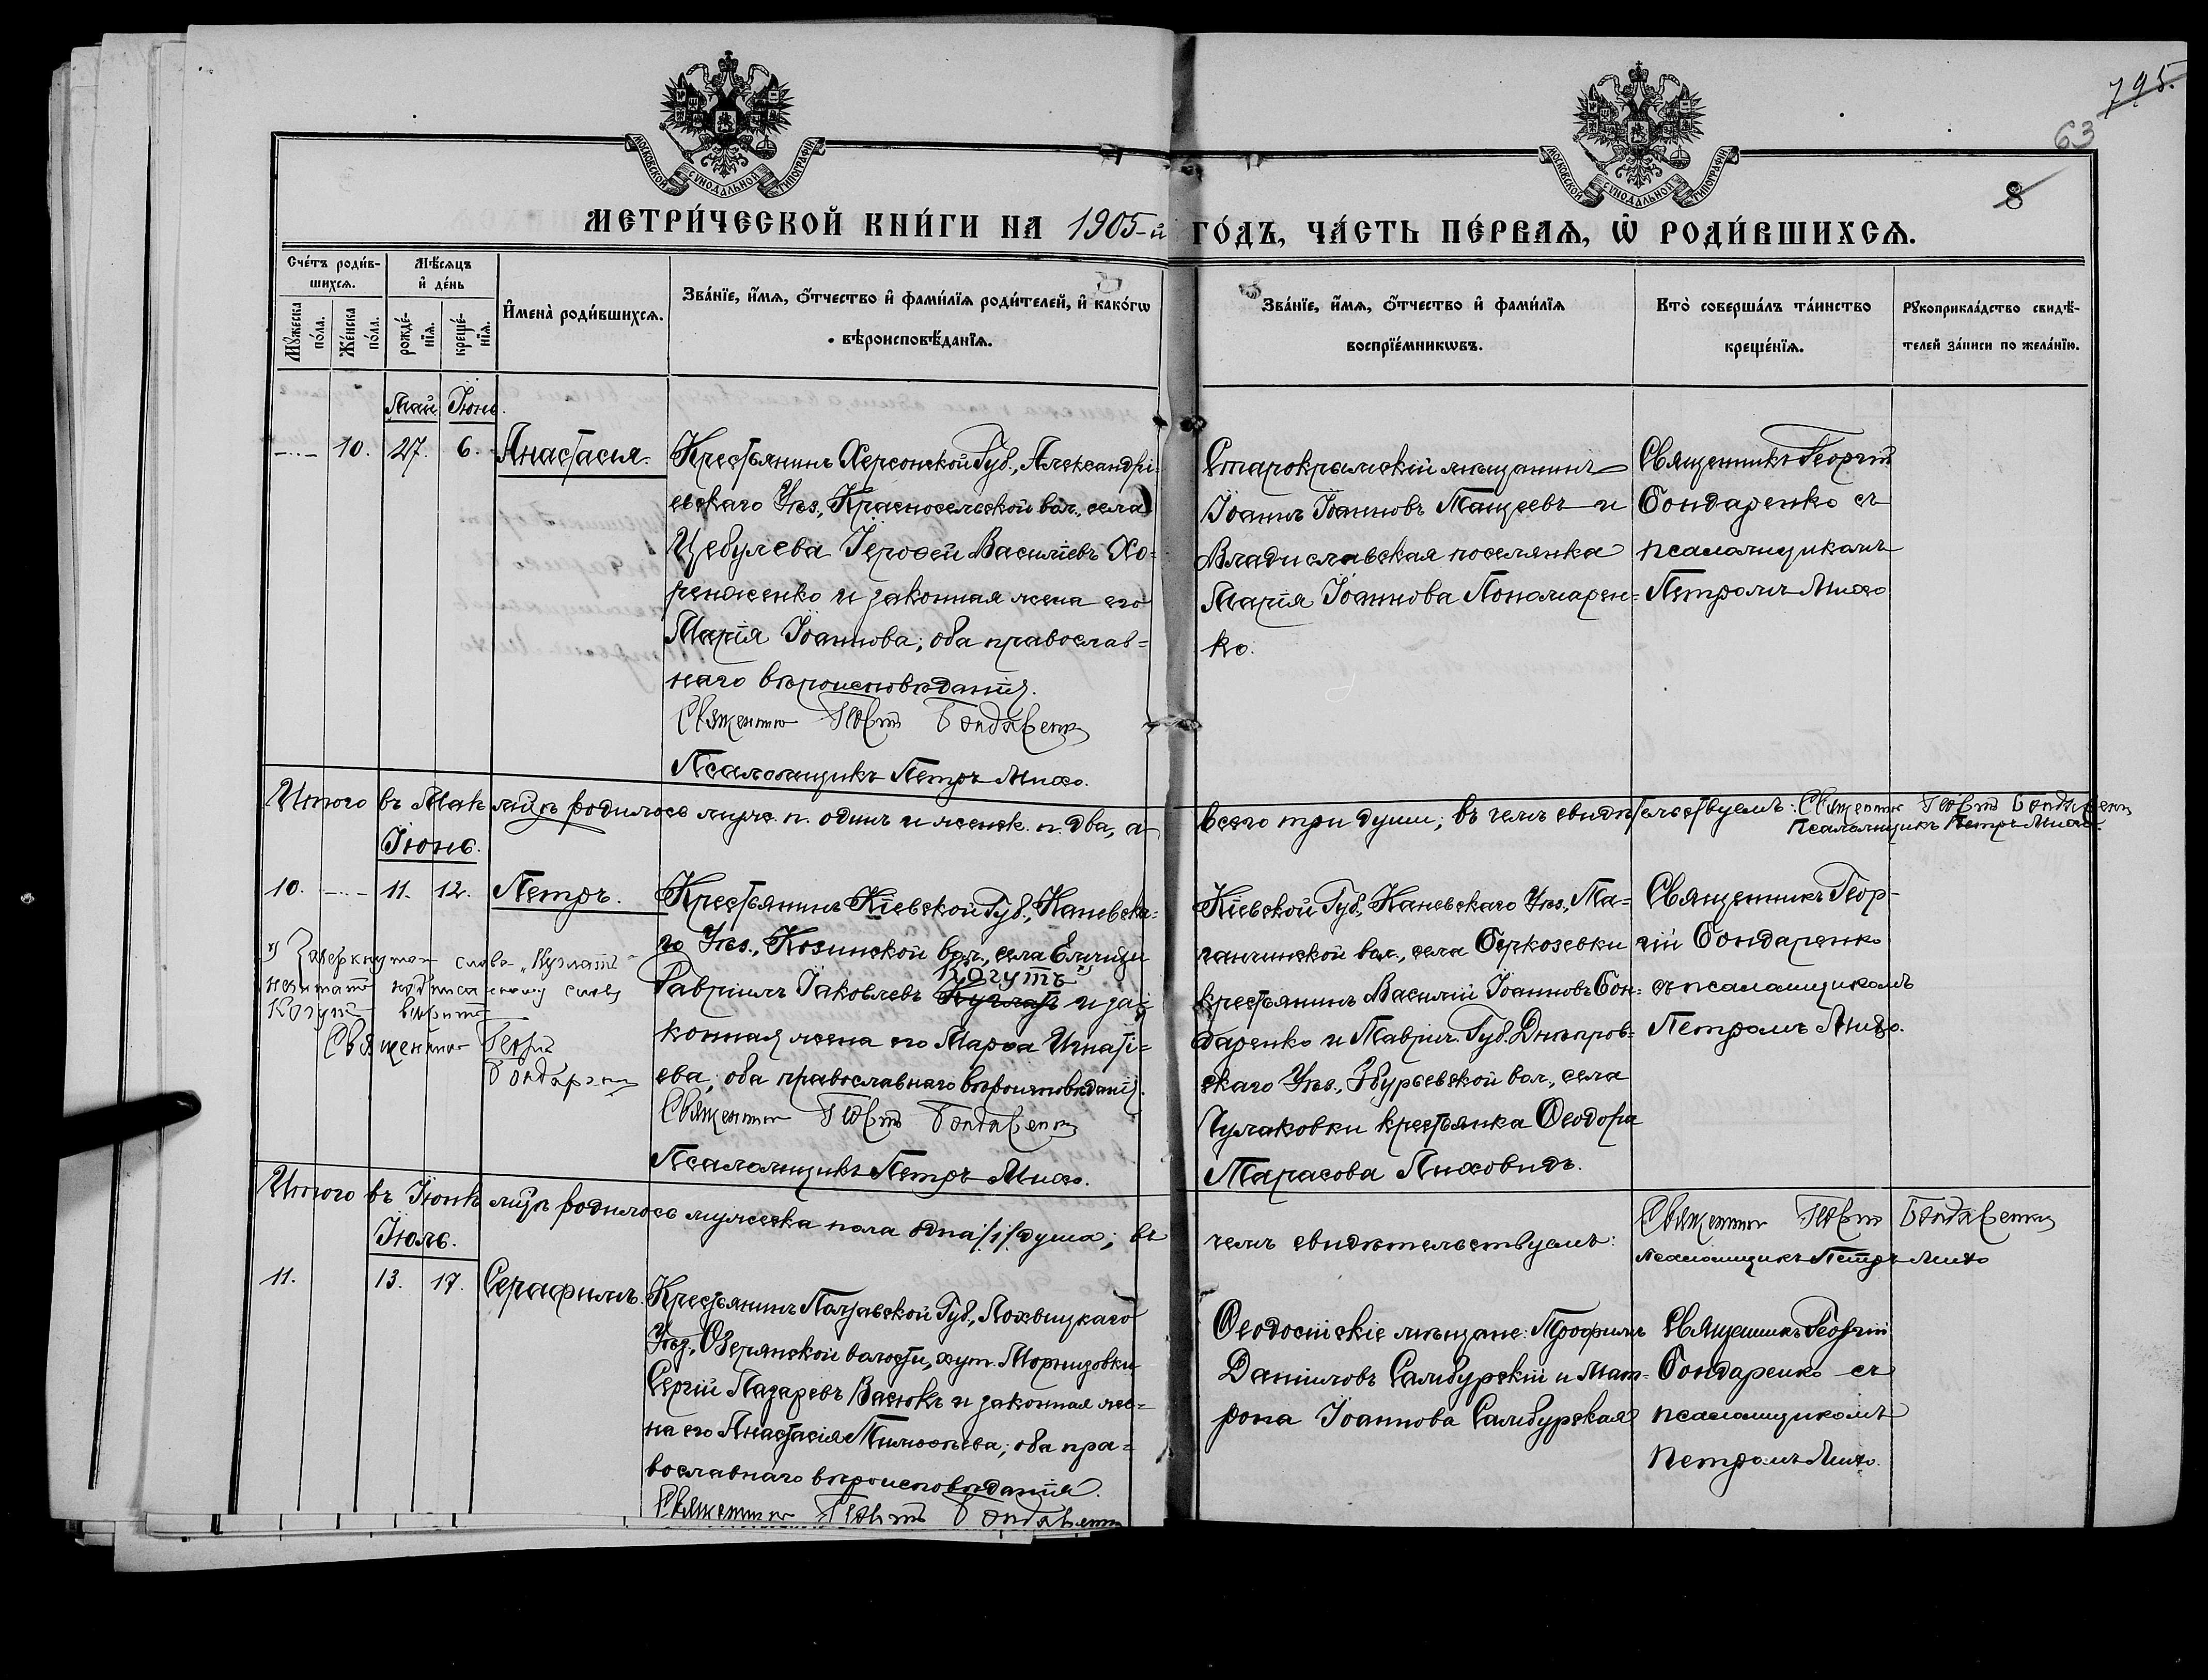 795.
63
8
МОСКОВСКОЙ СѴНОДАЛЬНОЙ ТИПОГРАФІИ
МОСКОВСКОЙ СѴНОДАЛЬНОЙ ТИПОГРАФІИ
МЕТРИ́ЧЕСКОЙ КНИ́ГИ НА 1905-й ГО́ДЪ, ЧА́СТЬ ПЕ́РВАѦ, Ѡ҆ РОДИ́ВШИХСѦ.
Сче́тъ роди́в-
шихсѧ.
Мѣ́сѧцъ
и҆ де́нь
Мꙋ́жеска по́ла.
Же́нска по́ла.
рожде́-
нїѧ.
креще́-
нїѧ.
И҆мена̀ роди́вшихсѧ.
Зва́нїе, и҆́мѧ, ѻ҆́тчество и҆ фами́лїѧ роди́телей, и҆ како́гѡ
вѣроисповѣ́данїѧ.
Зва́нїе, и҆́мѧ, ѻ҆́тчество и҆ фами́лїѧ
воспрїе́мникѡвъ.
Кто̀ соверша́лъ та́инство
креще́нїѧ.
Рꙋкоприкла́дство свидѣ́-
телей за́писи по жела́нїю.
Май Іюнь.
10. 27. 6. Анастасія.
Крестьянинъ Херсонской Губ., Александрі-
евскаго Уѣз., Красносельской вол., села
Цебулева Іероѳей Василіевъ Хо-
ренженко и законная жена его
Марія Іоаннова; оба православ-
наго вѣроисповѣданія.
Священникъ Георгій Бондаренко
Псаломщикъ Петръ Михо.
Старокрымскій мѣщанинъ
Іоаннъ Іоанновъ Мащеевъ и
Владиславская поселянка
Марія Іоаннова Пономарен-
ко.
Священникъ Георгій
Бондаренко съ
псаломщикомъ
Петромъ Михо
Итого въ Маѣ мѣсяцѣ родилось муж. п. одинъ и женск. п. два, а всего три души; въ чемъ свидѣтельствуемъ: Священникъ Георгій Бондаренко
Псаломщикъ Петръ Михо.
Іюнь.
10. 11. 12. Петръ.
Крестьянинъ Кіевской Губ., Каневска-
го Уѣз., Козинской вол., села Емчици
Когутъ
Гавріилъ Іаковлевъ и за-
конная жена его Марѳа Игнаті-
ева; оба православнаго вѣроисповѣданія.
Священникъ Георгій Бондаренко
Псаломщикъ Петръ Михо.
Зачеркнутое слово
не читать надписанному слову
Когутъ вѣрить
Священникъ Георгій
Бондаренко
Кіевской Губ., Каневскаго Уѣз., Та-
ганчинской вол., села Беркозевки
крестьянинъ Василій Іоанновъ Бон-
даренко и Таврич. Губ. Днѣпров-
скаго Уѣз., Збурьевской вол., села
Чулаковки крестьянка Ѳеодора
Тарасова Лиховидъ.
Священникъ Геор-
гій Бондаренко
съ псаломщикомъ
Петромъ Михо.
Итого въ Іюнѣ мѣсяцѣ родилось мужеска пола одна /1/ душа; въ чемъ свидѣтельствуемъ:
Священникъ Георгій Бондаренко
Псаломщикъ Петръ Михо
Іюль.
11. 13. 17. Серафимъ.
Крестьянинъ Полтавской Губ., Лохвицкаго
Уѣз., Озерянской волости, хут.
Сергій Лазаревъ Васюкъ и законная же-
на его Анастасія Тимоѳеева; оба пра-
вославнаго вѣроисповѣданія.
Священникъ Георгій Бондаренко
Ѳеодосійскіе мѣщане: Трофимъ
Даниловъ Самбурскій и Мат-
рона Іоаннова Самбурская
Священникъ Георгій
Бондаренко съ
псаломщикомъ
Петромъ Михо.